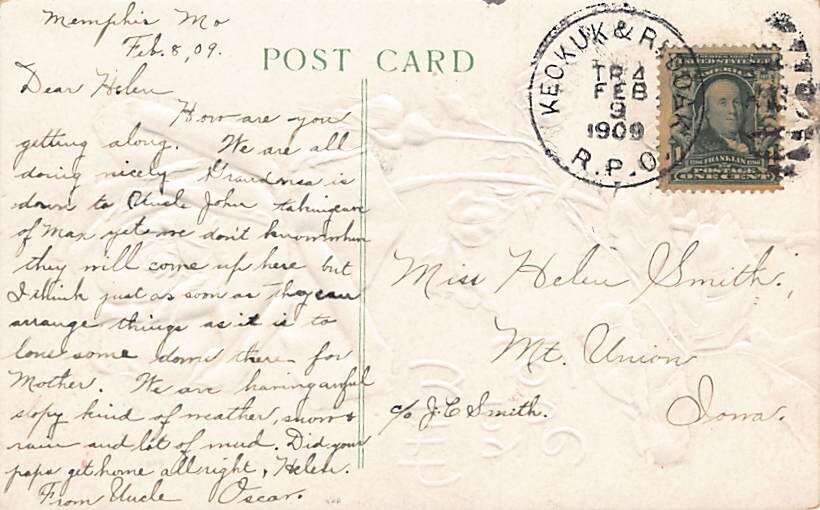 Memphis Mo
Feb. 8, 09.
POST CARD
Dear Helen
How are you
getting along. We are all
doing nicely Grandma is
down to Uncle John taking care
of Max yet & we don't know when
they will come up here but
I think just as soon as they can
arrange things as it is to
lonesome down there for
Mother. We are having awful
slopy kind of weather, snow &
rain and lot of mud. Did your
papa get home all right, Helen.
From Uncle Oscar.
KEOKUK & R.P.O.
TR 4
FEB
9
1909
UNITED STATES OF
AMERICA
FRANKLIN
POSTAGE
ONE CENT
Miss Helen Smith,
Mt. Union
c/o J. C. Smith. Iowa.